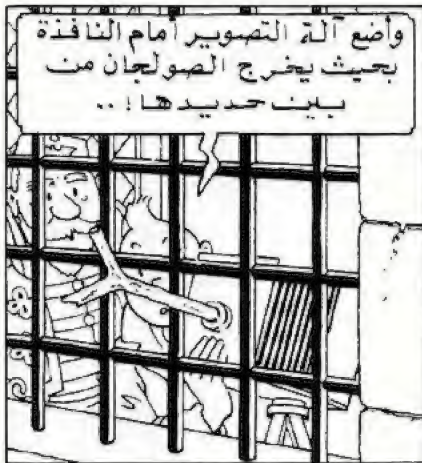 وأضع آلة التصوير أمام النافذة
بحيث يخرج الصولجان من
بين حديدها!..